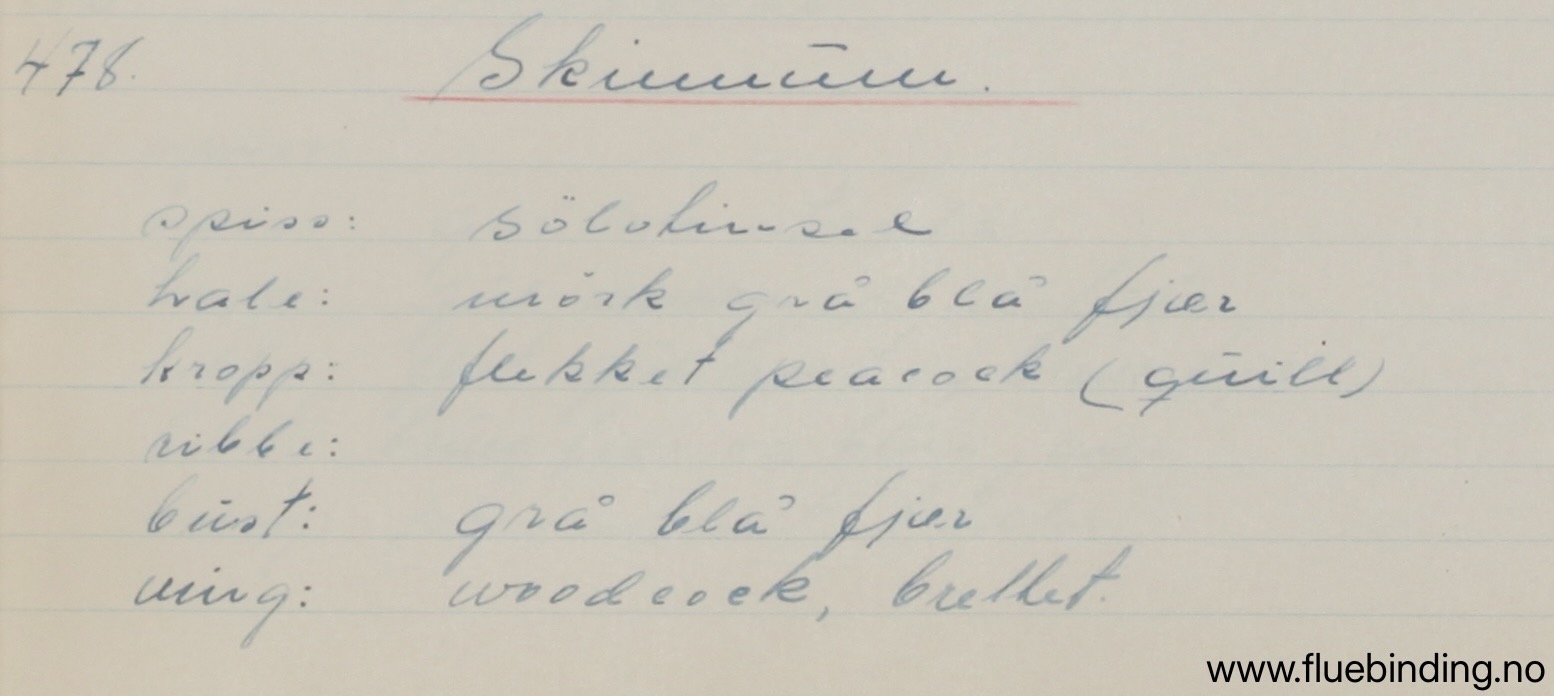 478. Skinnum.
spiss: sölvtinsel
hale: mörk grå blå fjær
kropp: flekket peacock (quill)
ribbe:
bust: grå blå fjær
ving: woodcock, brettet.
www.fluebinding.no